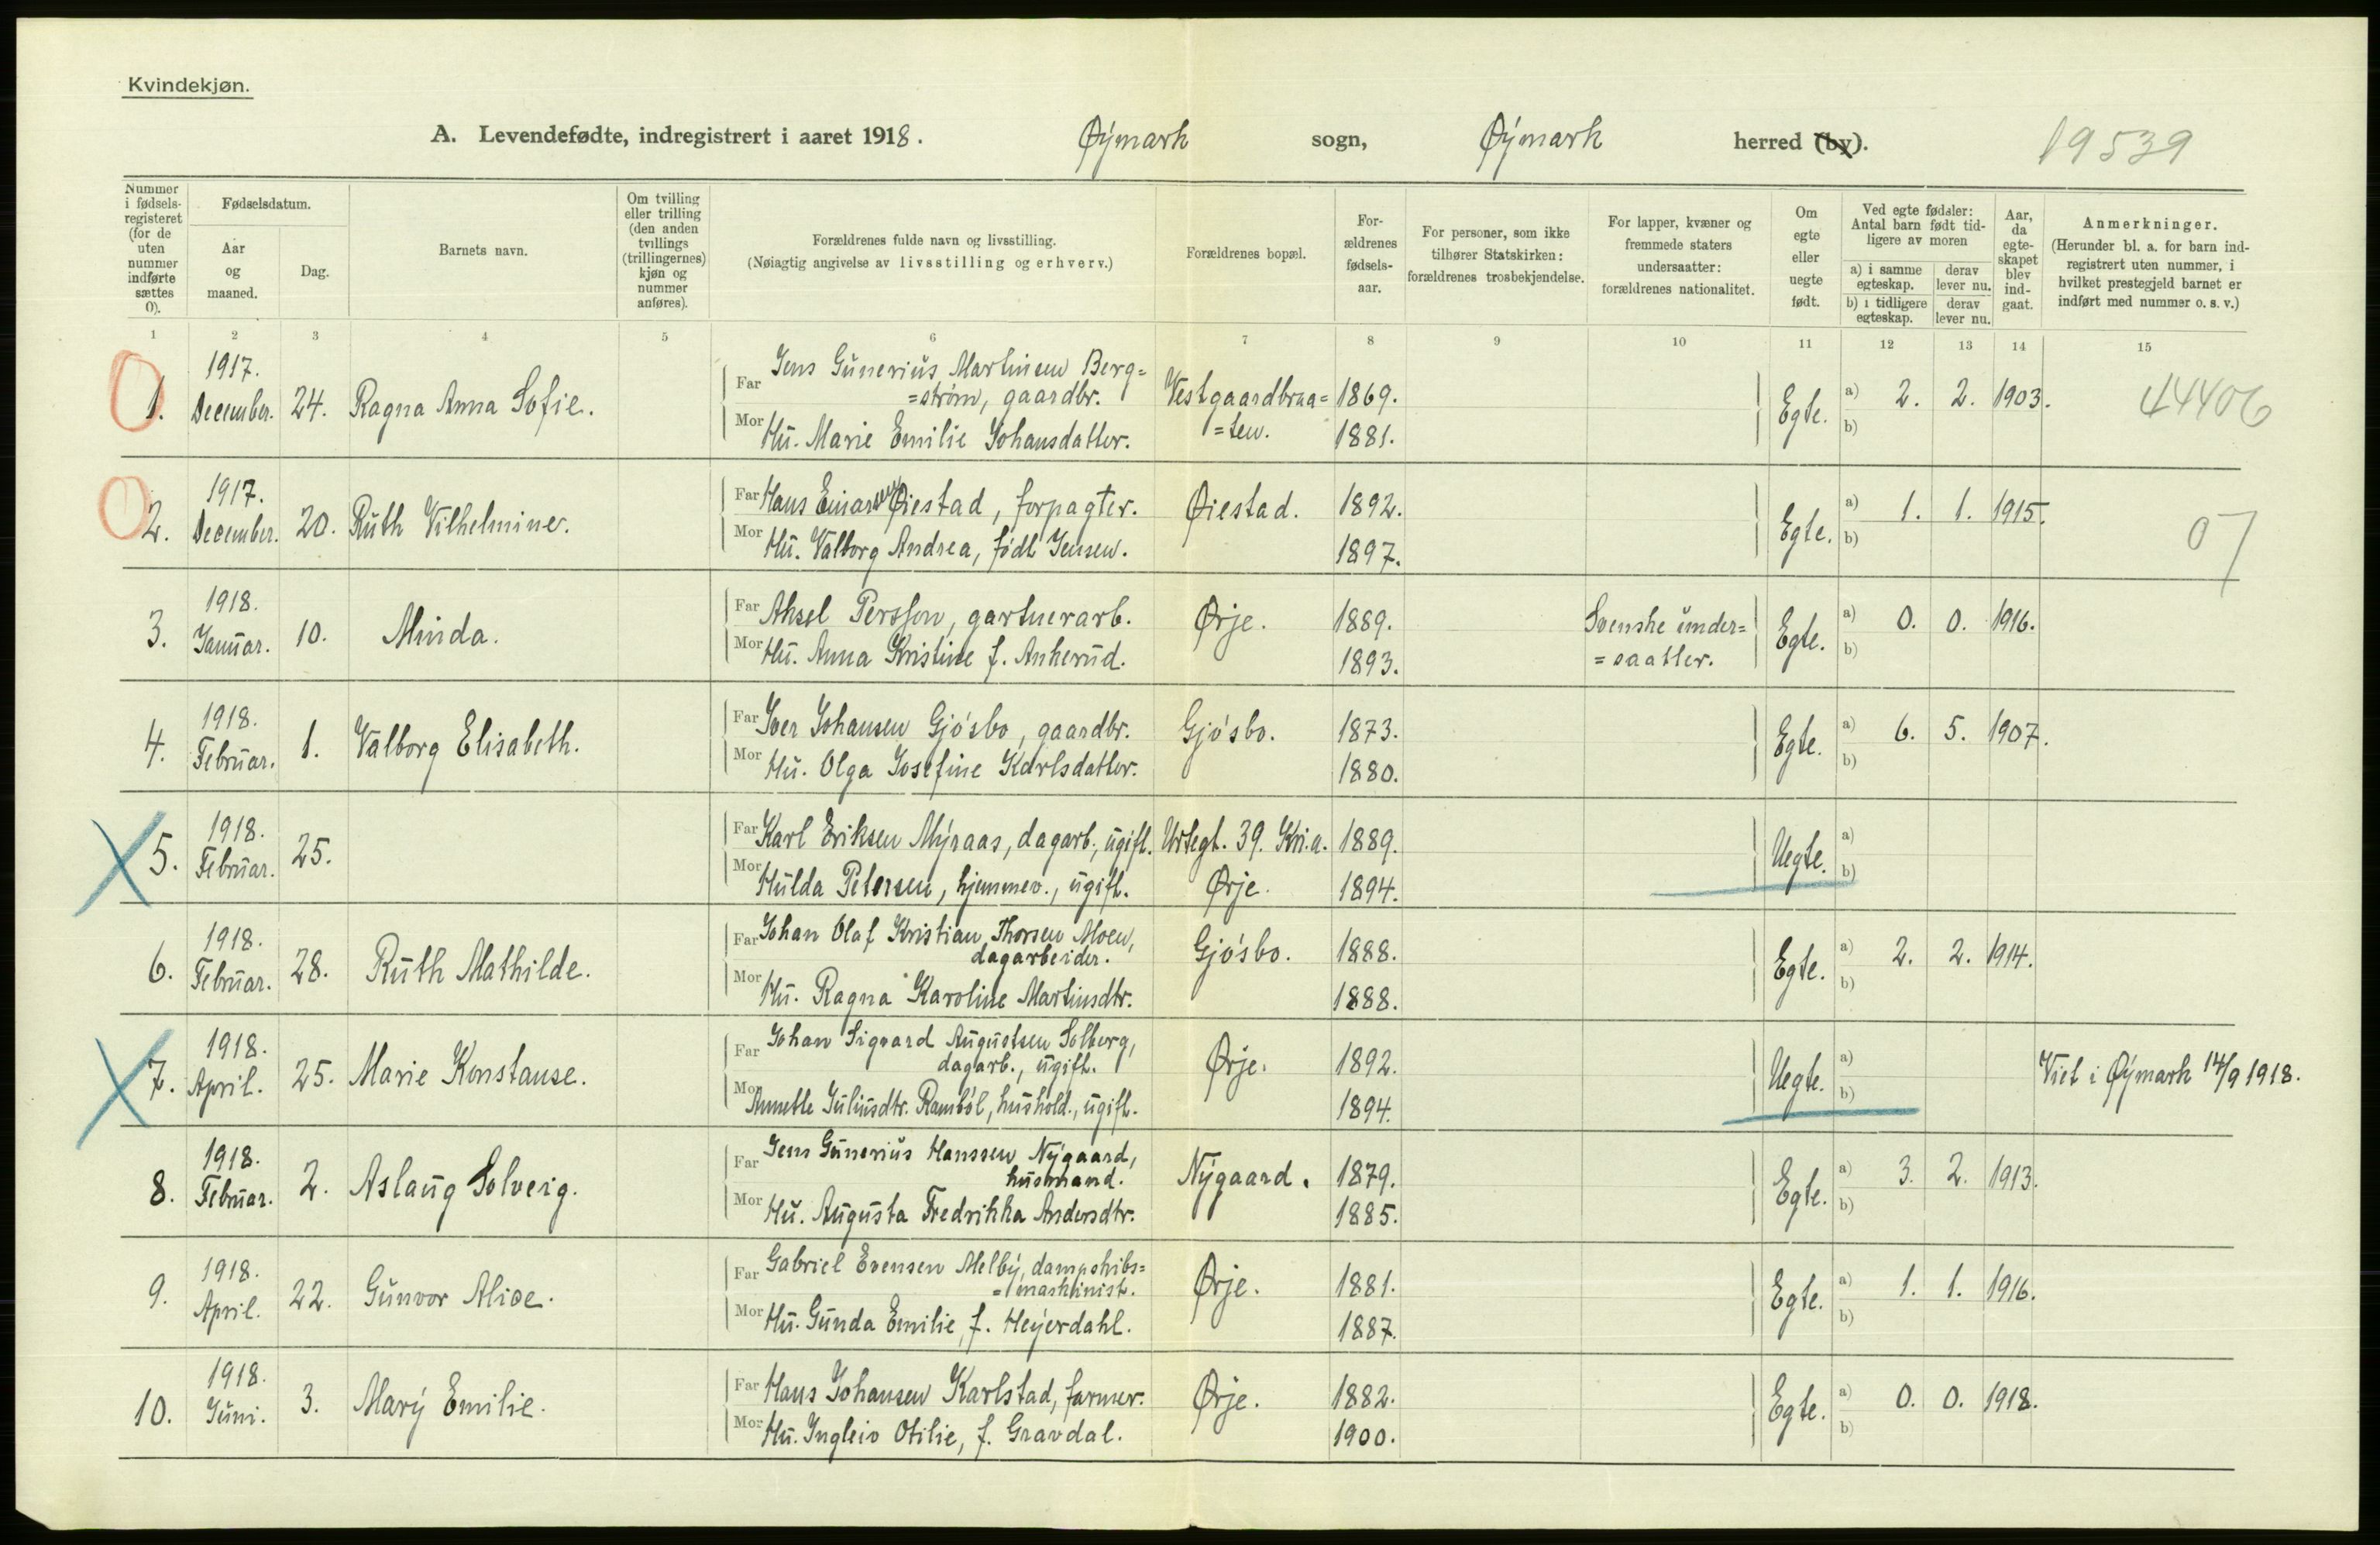 Kvindekjøn.
A. Levendefødte, indregistrert i aaret 1918. Øymark sogn, Øymark herred (by). 19539
Nummer i fødsels-registeret (for de uten nummer indførte sættes 0).
Fødselsdatum.
Aar og maaned.
Dag.
Barnets navn.
Om tvilling eller trilling (den anden tvillings (trillingernes) kjøn og nummer anføres).
Forældrenes fulde navn og livsstilling.
(Nøiagtig angivelse av livsstilling og erhverv.)
Forældrenes bopæl.
For-ældrenes fødsels-aar.
For personer, som ikke tilhører Statskirken: forældrenes trosbekjendelse.
For lapper, kvæner og fremmede staters undersaatter: forældrenes nationalitet.
Om egte eller uegte født.
Ved egte fødsler: Antal barn født tid-ligere av moren
a) i samme egteskap. derav lever nu.
b) i tidligere egteskap. derav lever nu.
Aar, da egte-skapet blev ind-gaat.
Anmerkninger.
(Herunder bl. a. for barn ind-registrert uten nummer, i hvilket prestegjeld barnet er indført med nummer o. s. v.)
1 2 3 4 5 6 7 8 9 10 11 12 13 14 15
1. 1917. December. 24. Ragna Anna Sofie. Far Jens Gunerius Martinsen Berg=
=strøm, gaardbr. Vestgaardbraa= 1869. Egte. a) 2. 2. 1903. 44406
Mor Hu. Marie Emilie Johansdatter. =ten. 1881. b)
2. 1917. December. 20. Ruth Vilhelmine. Far Hans Einarsen Øiestad, forpagter. Øiestad. 1892. Egte. a) 1. 1. 1915. 07
Mor Hu. Valborg Andrea, født Jensen. 1897. b)
3. 1918. Januar. 10. Minda. Far Aksel Persson, gartnerarb. Ørje. 1889. Svenske under= Egte. a) 0. 0. 1916.
Mor Hu. Anna Kristine f. Ankerud. 1893. =saatter. b)
4. 1918. Februar. 1. Valborg Elisabeth. Far Iver Johansen Gjøsbo, gaardbr. Gjøsbo. 1873. Egte. a) 6. 5. 1907.
Mor Hu. Olga Josefine Karlsdatter. 1880. b)
5. 1918. Februar. 25. Far Karl Eriksen Myraas, dagarb., ugift. Urtegt. 39. Kri.a. 1889. Uegte. a)
Mor Hulda Petersen, hjemmev., ugift. Ørje. 1894. b)
6. 1918. Februar. 28. Ruth Mathilde. Far Johan Olaf Kristian Thorsen Moen,
dagarbeider. Gjøsbo. 1888. Egte. a) 2. 2. 1914.
Mor Hu. Ragna Karoline Martinsdtr. 1888. b)
7. 1918. April. 25. Marie Konstanse. Far Johan Sigvard Augustsen Solberg,
dagarb., ugift. Ørje. 1892. Uegte. a) Viet i Øymark 14/9 1918.
Mor Annette Juliusdtr. Rambøl, hushold., ugift. 1894. b)
8. 1918. Februar. 2. Aslaug Solveig. Far Jens Gunerius Hanssen Nygaard,
husmand. Nygaard. 1879. Egte. a) 3. 2. 1913.
Mor Hu. Augusta Fredrikka Andersdtr. 1885. b)
9. 1918. April. 22. Gunvor Alice. Far Gabriel Evensen Melby, dampskibs=
=maskinist. Ørje. 1881. Egte. a) 1. 1. 1916.
Mor Hu. Gunda Emilie, f. Heyerdahl. 1887. b)
10. 1918. Juni. 3. Mary Emilie. Far Hans Johansen Karlstad, farmer. Ørje. 1882. Egte. a) 0. 0. 1918.
Mor Hu. Ingleiv Otilie, f. Gravdal. 1900. b)